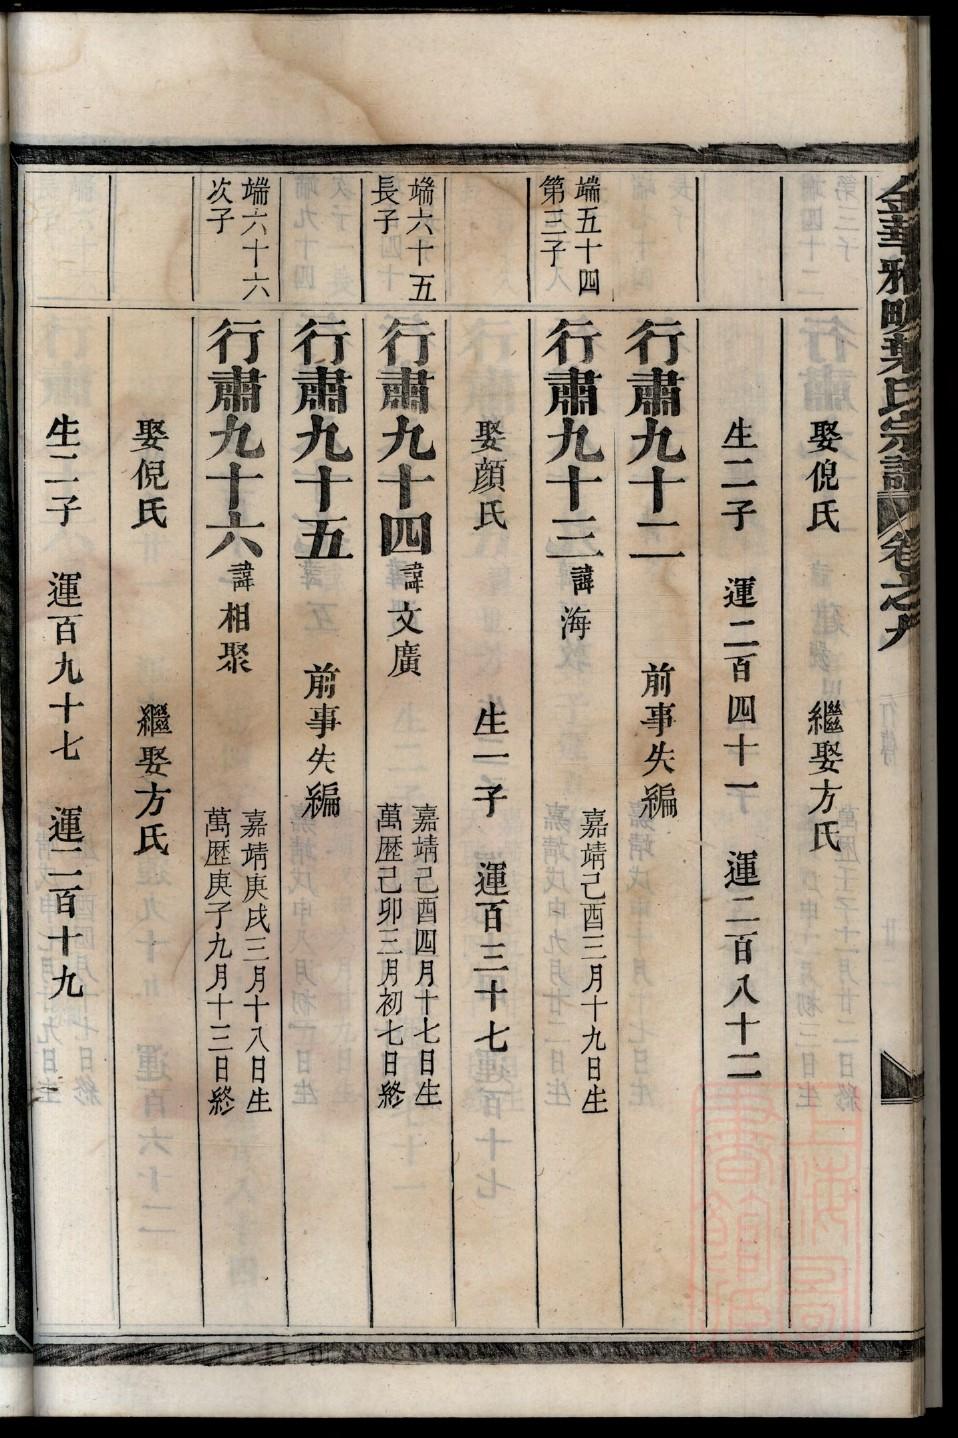 金華雅畈葉氏宗譜 卷之九
娶倪氏 繼娶方氏
生二子 運二百四十一 運二百八十二
行肅九十二 前事失編
端五十四
第三子
行肅九十三 諱海 嘉靖己酉三月十九日生
娶顏氏 生一子 運百三十七
端六十五
長子
行肅九十四 諱文廣 嘉靖己酉四月十七日生
萬歷己卯三月初七日終
行肅九十五 前事失編
端六十六
次子
行肅九十六 諱相聚 嘉靖庚戌三月十八日生
萬歷庚子九月十三日終
娶倪氏 繼娶方氏
生二子 運百九十七 運二百十九